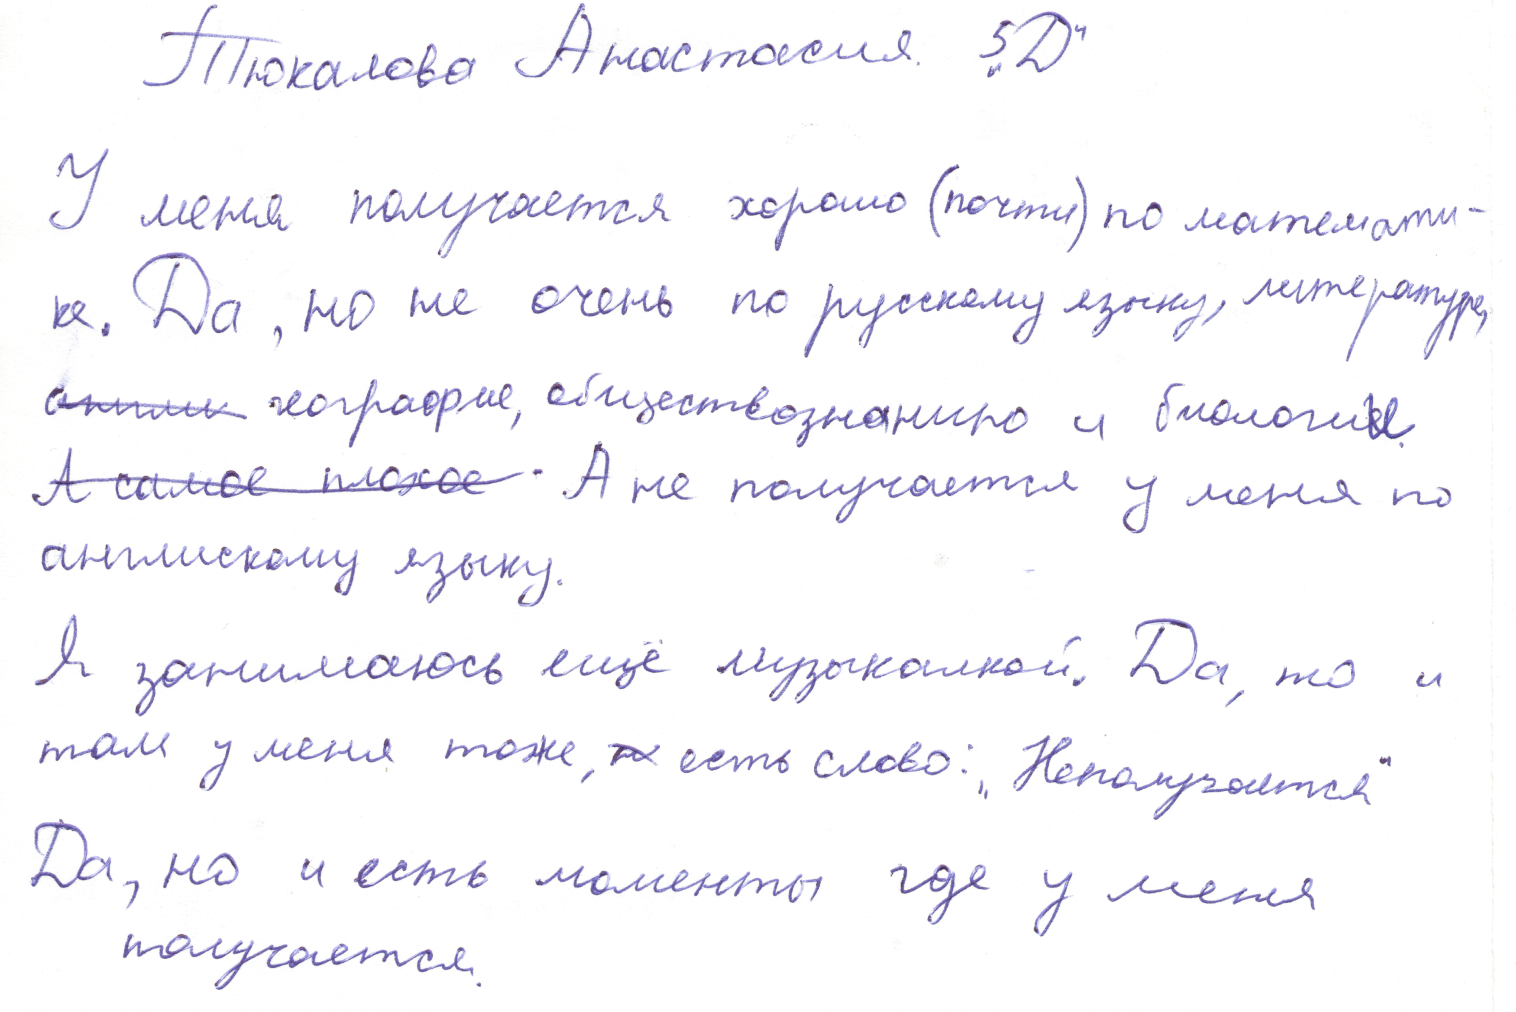 Тюкалова Анастасия. 5„Д"
У меня получается хорошо (почти) по математи-
ке. Да, но не очень по русскому языку, литературе,
географие, обществознанию и биологии.
А не получается у меня по
англискому языку.
Я занимаюсь ещё музыкалкой. Да, то и
там у меня тоже, есть слово: „Неполучается"
Да, но и есть моменты где у меня
получается.